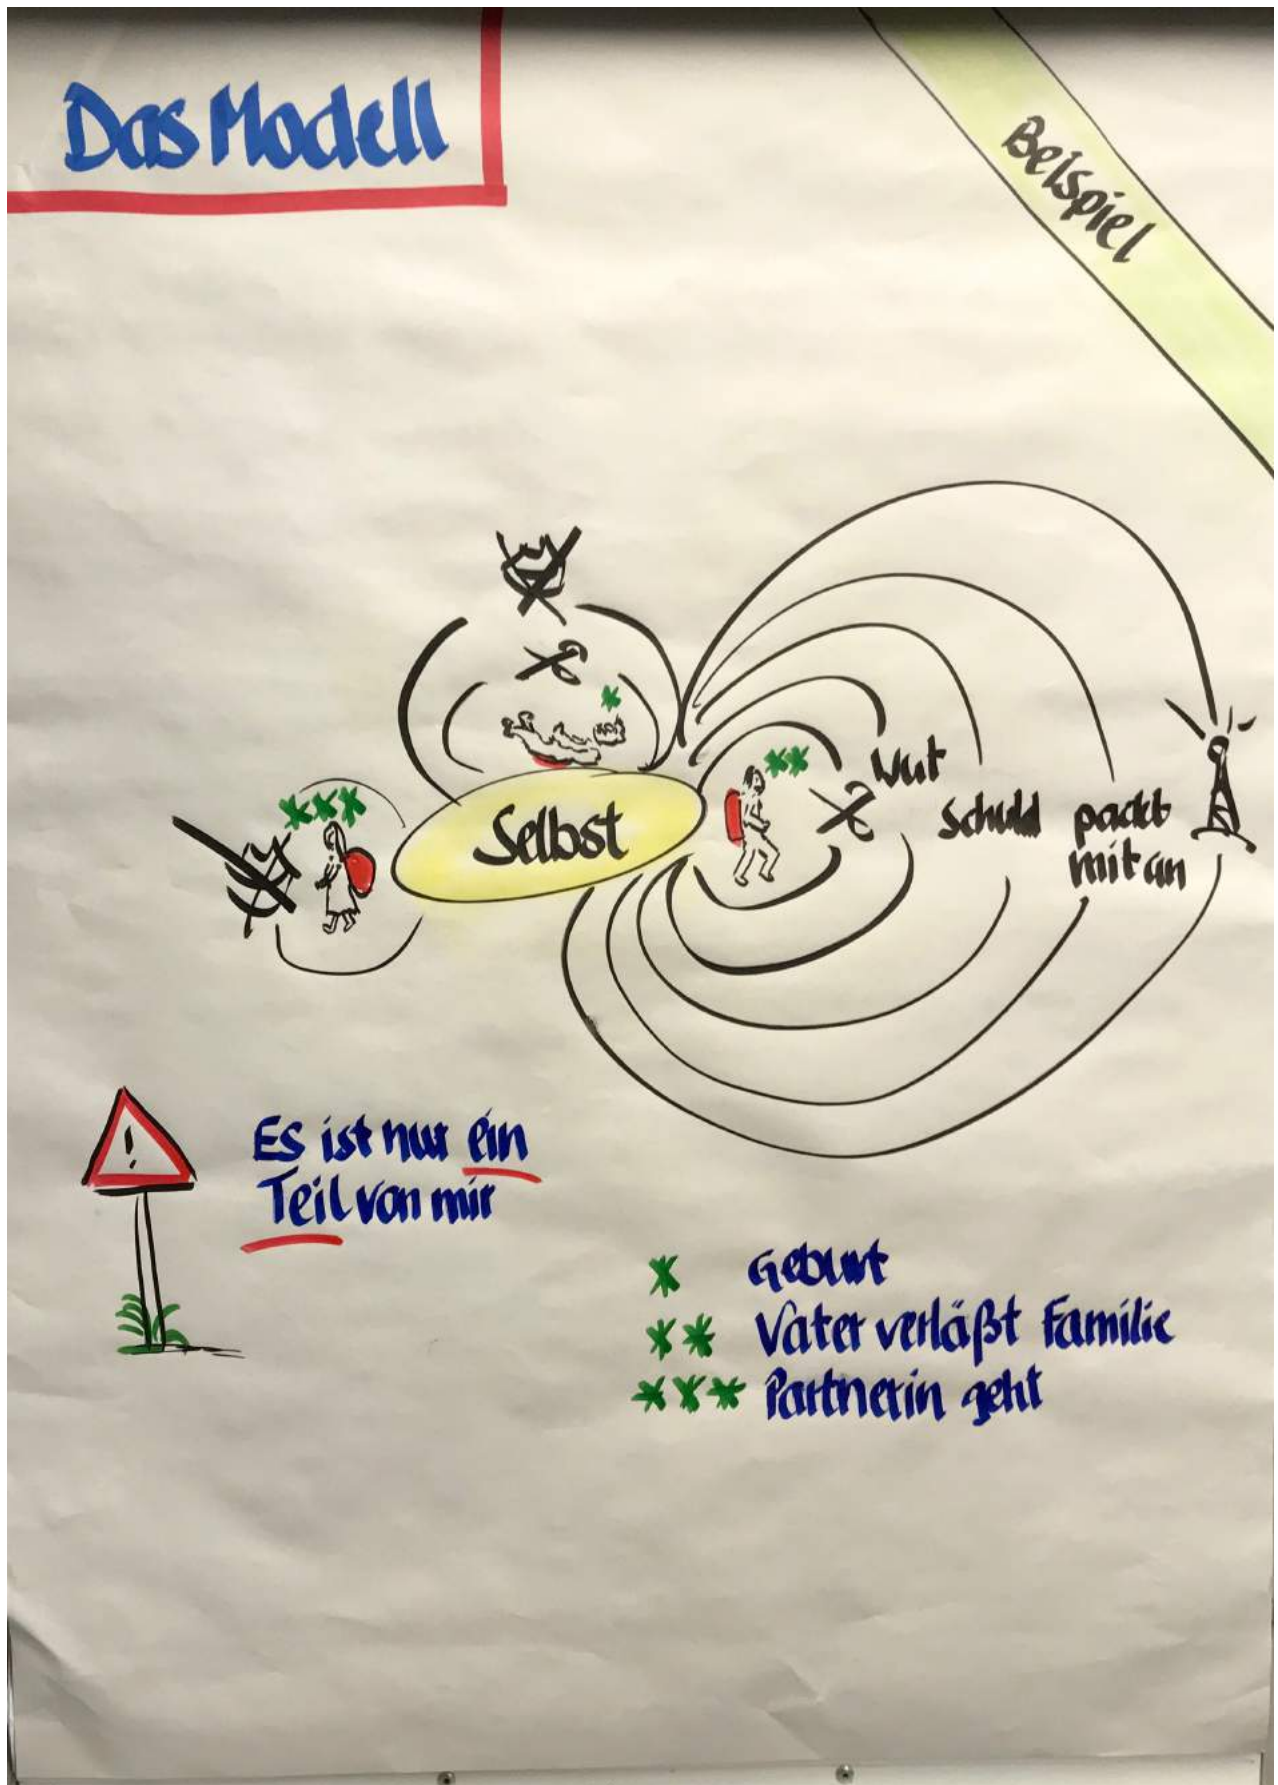 Das Modell
Beispiel
Selbst
Wut
Schuld
packt
mit an
!
Es ist nur ein
Teil von mir
* Geburt
** Vater verläßt Familie
*** Partnerin geht